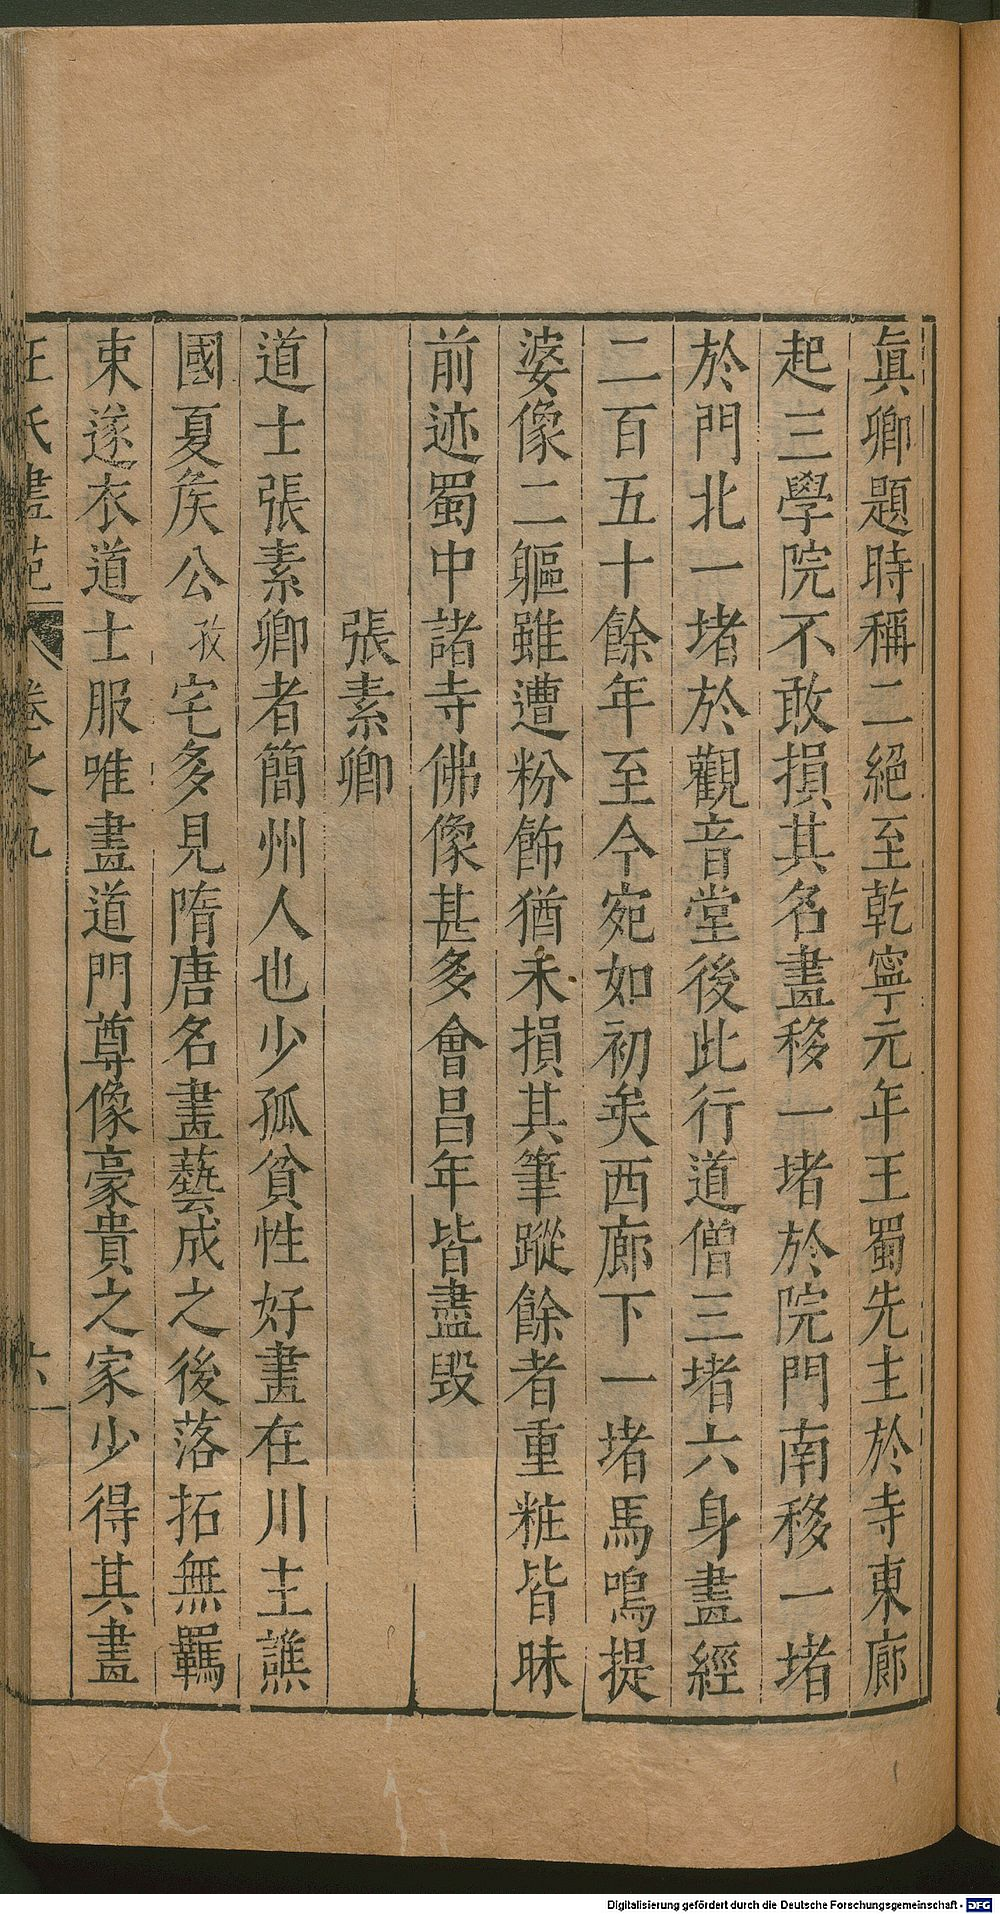 眞卿題時稱二絕至乾寧元年王蜀先主於寺東廊
起三學院不敢損其名畫移一堵於院門南移一堵
於門北一堵於觀音堂後此行道僧三堵六身畫經
二百五十餘年至今宛如初矣西廊下一堵馬鳴提
婆像二軀雖遭粉飾猶未損其筆蹤餘者重粧皆昧
前迹蜀中諸寺佛像甚多會昌年皆盡毀
張素卿
道士張素卿者簡州人也少孤貧性好畫在川主譙
國夏侯公孜宅多見隋唐名畫藝成之後落拓無羈
束遂衣道士服唯畫道門尊像豪貴之家少得其畫
王氏畫苑 卷之九 六
Digitalisierung gefördert durch die Deutsche Forschungsgemeinschaft - DFG